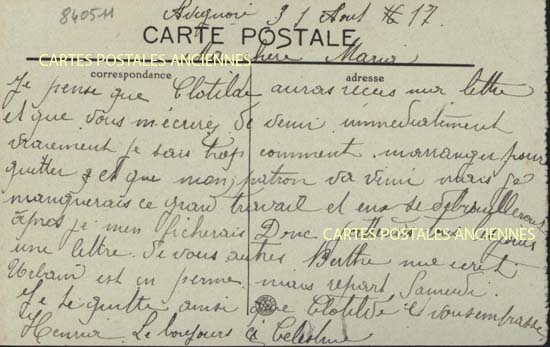 840511
Avignon 31 Aout 17.
CARTE POSTALE
CARTES POSTALES ANCIENNES
Ma chère Maria
correspondance
adresse
Je pense que Clotilde auras recus ma lettre
et que vous m'écrives de venir immediatiment
vraiement je sais trop comment marranger pour
quitter et que mon patron va venir mais je
manquerais ce gran travail et ens se
après je men ficherais Donc
CARTES POSTALES ANCIENNES
une lettre de vous autres Berthe
Urbain est en perme mais repart Samedi.
Je te quitte ainsi que Clotilde et vous embrasse
Le bonjours à Celestine